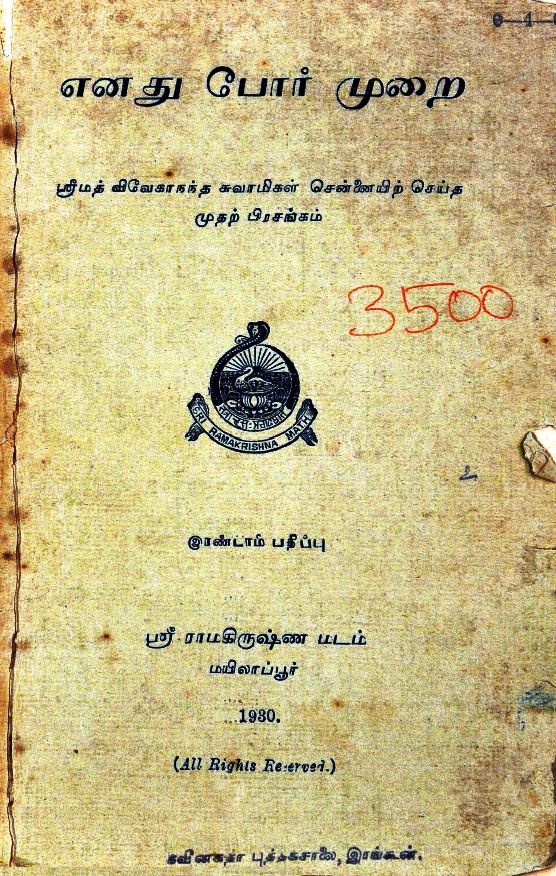 எனது போர் முறை
ஸ்ரீமத் விவேகாநந்த சுவாமிகள் சென்னையிற் செய்த
முதற் பிரசங்கம்
3500
SRI RAMAKRISHNA MATH
இரண்டாம் பதிப்பு
ஸ்ரீ ராமகிருஷ்ண மடம்
மயிலாப்பூர்
1930.
(All Rights Reserved.)
புத்தகசாலை, இரங்கூன்.